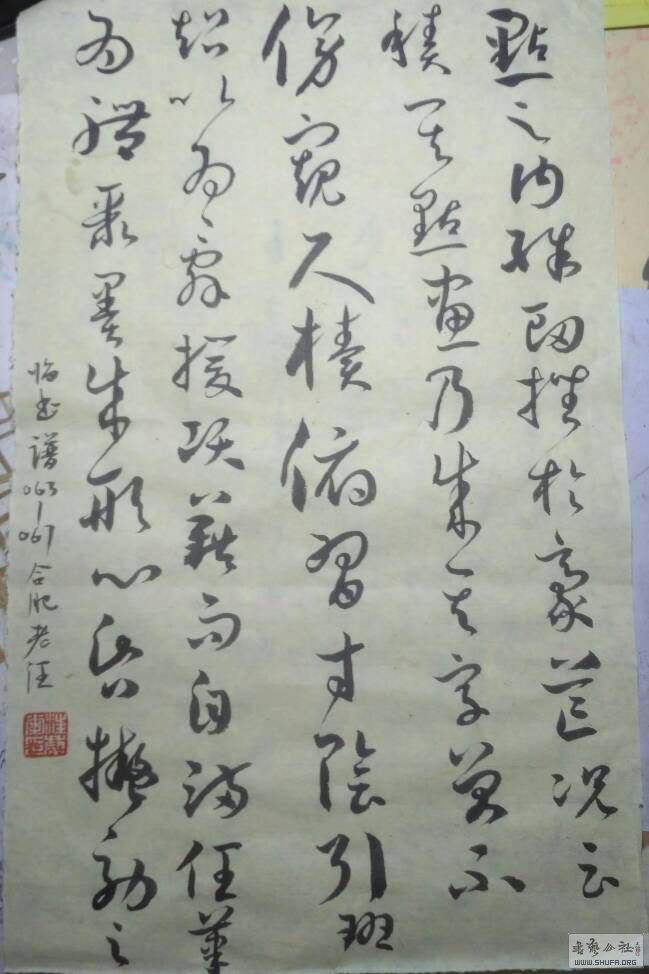 點之內殊衄挫於豪芒況云
積其點畫乃成其字曾不
傍窺尺櫝俯習寸陰引班
超以為辭援項籍而自滿任筆
為體聚墨成形心昏擬效之
临书譜063-067合肥老汪
書藝公社
WWW.SHUFA.ORG